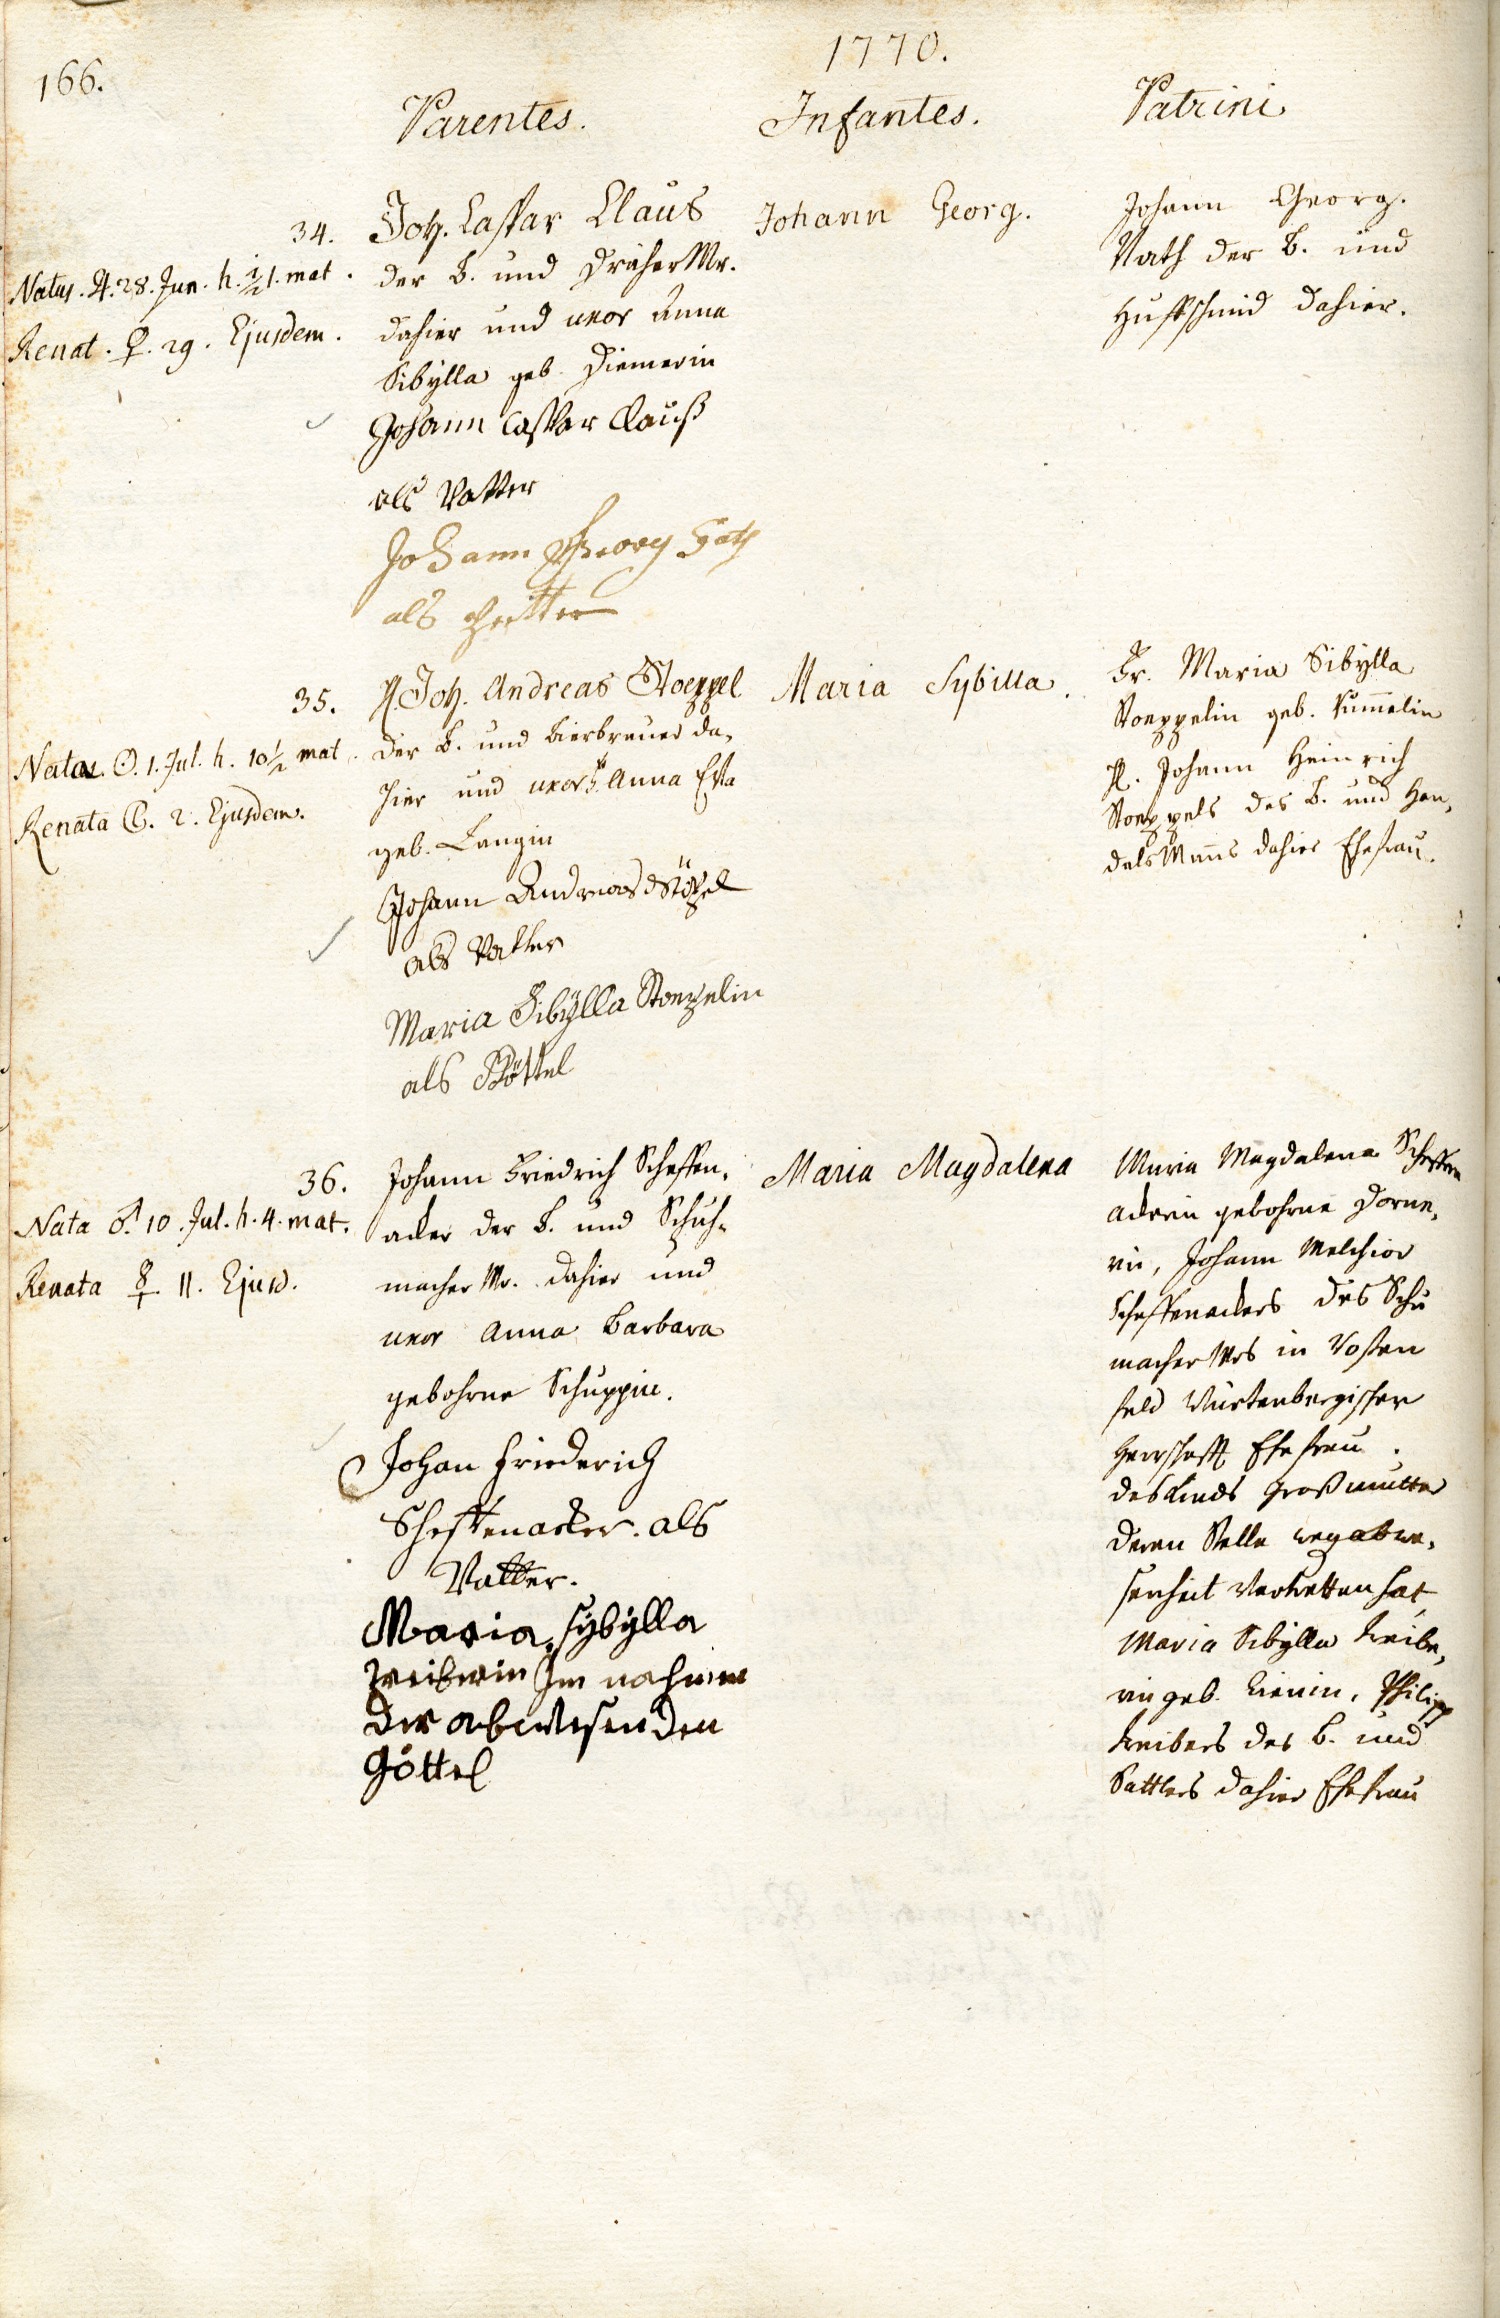 166.
1770.
Parentes.
Infantes.
Patrini
34.
Natus. ♃. 28. Jun. h. ½ 1. mat.
Renat. ♀. 29. Ejusdem.
Joh. Caspar Claus
der B. und Dräher Mr.
dahier und uxor Anna
Sibÿlla geb. Diemerin
Johann Caspar Clauß
als Vatter
Johann Georg
als
Johann Georg.
Johann Georg.
Vath der B. und
Hufschmid dahier.
35.
Nata. ☉. 1. Jul. h. 10½ mat.
Renata ☾. 2. Ejusdem.
H. Joh. Andreas Stoeppel
der B. und Bierbrauer da-
hier und uxor Fr. Anna Eva
geb. Langin
Johann Andreas Stöpel
als Vatter
Maria Sibÿlla Stoepelin
als Göttel
Maria Sybilla.
Fr. Maria Sibÿlla
Stoeppelin geb. Kummelin
H. Johann Heinrich
Stoeppels des B. und Han-
dels Manns dahier Ehefrau.
36.
Nata ♂. 10. Jul. h. 4. mat.
Renata ☿. 11. Ejusd.
Johann Friedrich Scheffen-
acker der B. und Schuh-
macher Mr. dahier und
uxor Anna Barbara
gebohrne Schuppin.
Johan Friederich
Scheffenacker. als
Vatter.
Maria, Sybÿlla
Im nahmen
der abwesenden
Göttel
Maria Magdalena
Maria Magdalena Scheffen
ackerin gebohrne Dorne-
rin, Johann Melchior
Scheffenackers des Schu
macher Mrs in
feld Würtenbergischer
Herrschafft Ehefrau.
des Kinds Großmutter
deren Stelle weg abwe-
senheit Vertretten hat
Maria Sibÿlla Treibe-
rin geb. Philipp
Treibers des B. und
Sattlers dahier Ehefrau